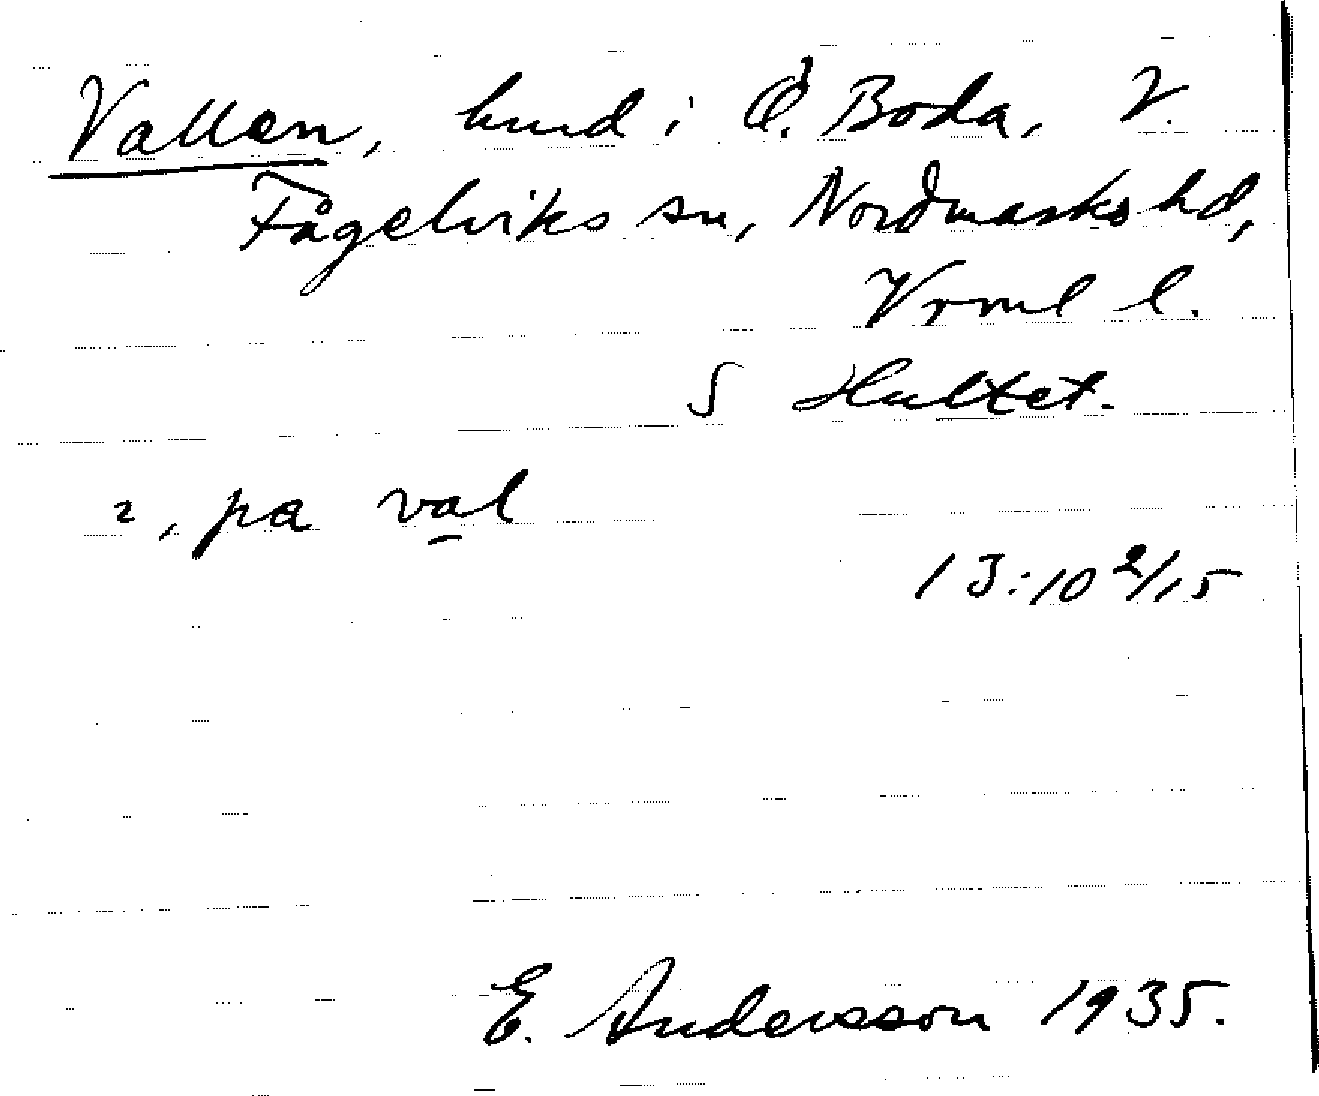 Vallen, hmd i Ö. Boda, V.
Fågelviks sn, Nordmarks hd,
Vrml l.
S Hultet.
2, på val
13:10 2/15
E. Andersson 1935.